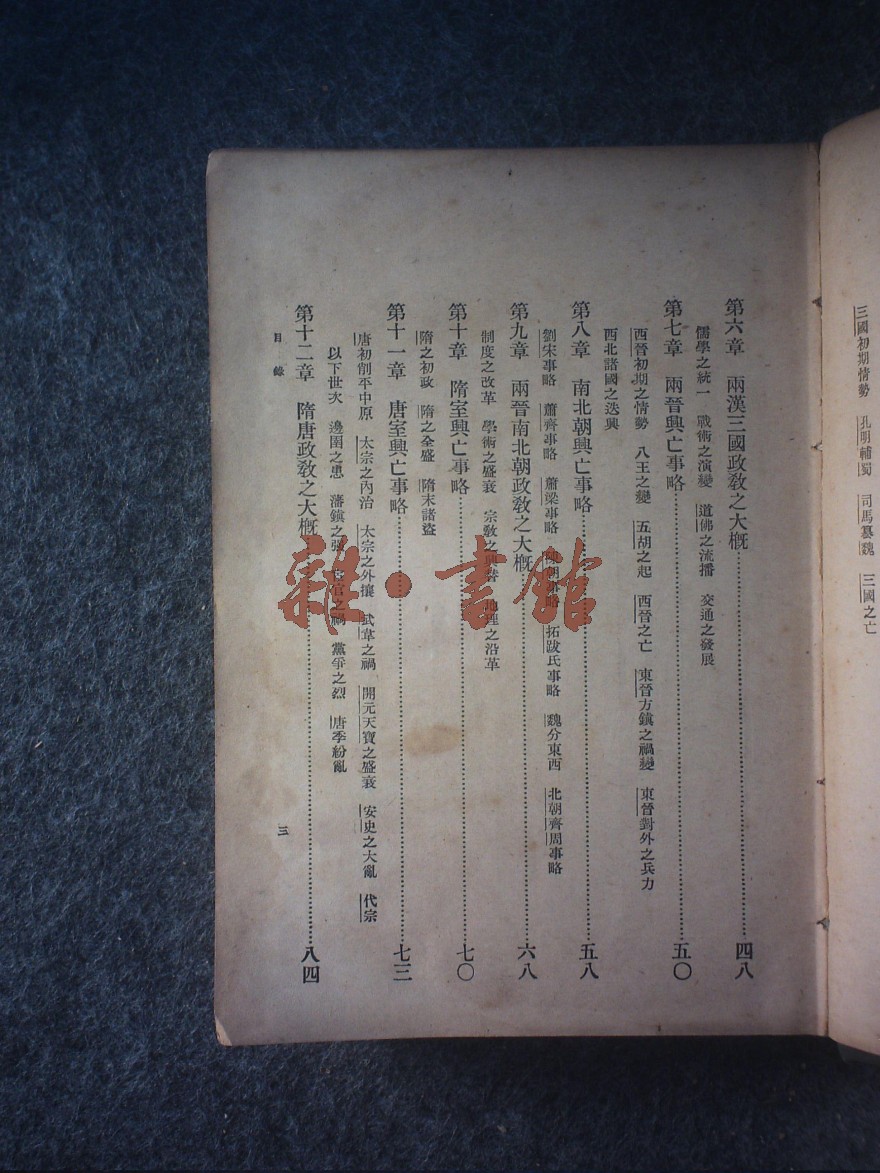 三國初期情勢　孔明輔蜀　司馬篡魏　三國之亡
第六章　兩漢三國政教之大概……四八
儒學之統一　戰術之演變　道佛之流播　交通之發展
第七章　兩晉興亡事略……五〇
西晉初期之情勢　八王之變　五胡之起　西晉之亡　東晉方鎮之禍變　東晉對外之兵力
西北諸國之迭興
第八章　南北朝興亡事略……五八
劉宋事略　蕭齊事略　蕭梁事略　陳朝事略　拓跋氏事略　魏分東西　北朝齊周事略
第九章　兩晉南北朝政教之大概……六八
制度之改革　學術之盛衰　宗教之興替　地理之沿革
第十章　隋室興亡事略……七〇
隋之初政　隋之全盛　隋末諸盜
第十一章　唐室興亡事略……七三
唐初削平中原　太宗之內治　太宗之外攘　武韋之禍　開元天寶之盛衰　安史之大亂　代宗
以下世次　邊圉之患　藩鎮之強　宦官之禍　黨爭之烈　唐季紛亂
第十二章　隋唐政教之大概……八四
目錄
三
雜·書館